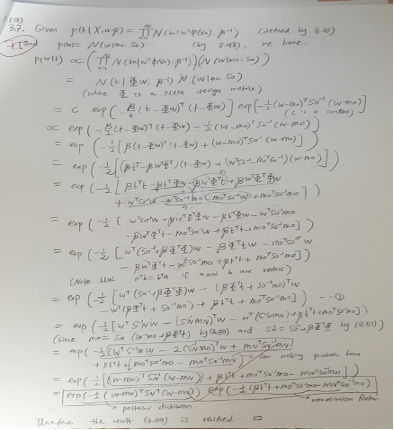 (a)
3.7. Given p(t|X,w,β) = ∏ N(tn|wᵀφ(xn), β⁻¹) (defined by 3.10)
and p(w) = N(w|m0, S0) (by 3.48), we have:
p(w|t) ∝ (∏ N(tn|wᵀφ(xn), β⁻¹)) (N(w|m0, S0))
= N(t|Φw, β⁻¹) N(w|m0, S0)
(where Φ is a design matrix)
= c exp(-β/2 (t-Φw)ᵀ(t-Φw)) exp(-½(w-m0)ᵀS0⁻¹(w-m0))
(c is a constant)
∝ exp(-β/2 (t-Φw)ᵀ(t-Φw) - ½(w-m0)ᵀS0⁻¹(w-m0))
= exp(-½[β(t-Φw)ᵀ(t-Φw) + (w-m0)ᵀS0⁻¹(w-m0)])
= exp(-½[(βtᵀ-βwᵀΦᵀ)(t-Φw) + (wᵀS0⁻¹-m0ᵀS0⁻¹)(w-m0)])
= exp(-½[βtᵀt-βtᵀΦw-βwᵀΦᵀt+βwᵀΦᵀΦw
+wᵀS0⁻¹w-wᵀS0⁻¹m0-m0ᵀS0⁻¹w+m0ᵀS0⁻¹m0])
= exp(-½[wᵀS0⁻¹w+βwᵀΦᵀΦw-βtᵀΦw-wᵀS0⁻¹m0
-βwᵀΦᵀt-m0ᵀS0⁻¹w+βtᵀt+m0ᵀS0⁻¹m0])
= exp(-½[wᵀ(S0⁻¹+βΦᵀΦ)w-βΦᵀtw-m0ᵀS0⁻¹w
-βwᵀΦᵀt-wᵀS0⁻¹m0+βtᵀt+m0ᵀS0⁻¹m0])
(Note that aᵀb=bᵀa if a and b are vectors)
= exp(-½[wᵀ(S0⁻¹+βΦᵀΦ)w-(βΦᵀt+S0⁻¹m0)ᵀw
-wᵀ(βΦᵀt+S0⁻¹m0)+βtᵀt+m0ᵀS0⁻¹m0]) --①
= exp(-½[wᵀSN⁻¹w-(SN⁻¹mN)ᵀw-wᵀ(SN⁻¹mN)+βtᵀt+m0ᵀS0⁻¹m0])
(Since mN=SN(S0⁻¹m0+βΦᵀt) by (3.50) and SN⁻¹=S0⁻¹+βΦᵀΦ by (3.51))
= exp(-½[(wᵀSN⁻¹w-2(SN⁻¹mN)ᵀw+mNᵀSN⁻¹mN)
+βtᵀt+m0ᵀS0⁻¹m0-mNᵀSN⁻¹mN]) for making quadratic form
= exp(-½[(w-mN)ᵀSN⁻¹(w-mN)+βtᵀt+m0ᵀS0⁻¹m0-mNᵀSN⁻¹mN])
= exp(-½(w-mN)ᵀSN⁻¹(w-mN)) exp(-½(βtᵀt+m0ᵀS0⁻¹m0-mNᵀSN⁻¹mN))
posterior distribution normalization factor
Therefore the result (3.49) is reached □